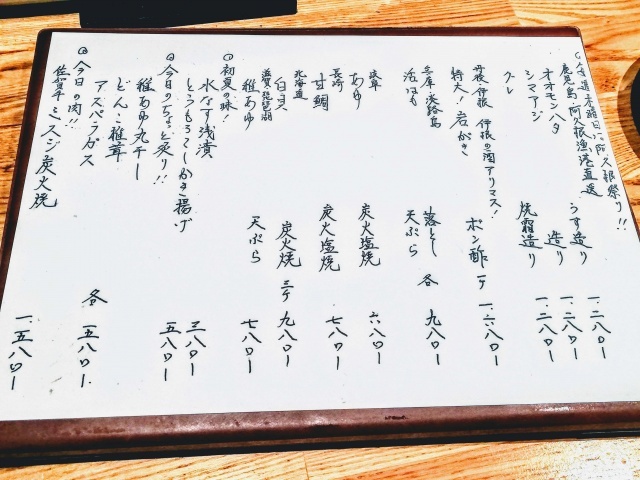 鹿児島・阿久根漁港直送
オオモンハタ うす造り 一.二八〇ー
シマアジ 造り 一.二八〇ー
グレ 焼霜造り 一.二八〇ー
丹後・伊根 伊根の酒アリマス!
特大!岩がき ポン酢 一ケ 一.六八〇ー
兵庫・淡路島
活はも 落とし 天ぷら 各 九八〇ー
岐阜
あゆ 炭火塩焼 六八〇ー
長崎
甘鯛 炭火塩焼 七八〇ー
北海道
白貝 炭火焼 三ケ 九八〇ー
滋賀・琵琶湖
稚あゆ 天ぷら 七八〇ー
初夏の味!
水なす浅漬 三八〇ー
とうもろこしかき揚げ 五八〇ー
今日のちょっと炙り!!
稚あゆ丸干し
どんこ椎茸
アスパラガス 各 五八〇ー
今日の肉!!
佐賀牛ミスジ炭火焼 一.五八〇ー